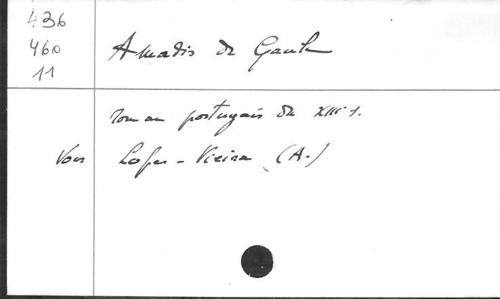 436
460
11
Amadis de Gaule
roman portugais du XIIIe s.
Voir Lopes-Vieira (A.)